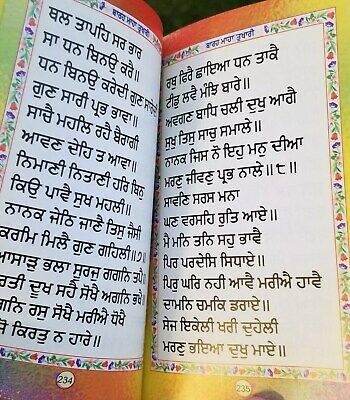 ਬਾਰਹ ਮਾਹਾ ਤੁਖਾਰੀ
ਥਲ ਤਾਪਹਿ ਸਰ ਭਾਰ
ਸਾ ਧਨ ਬਿਨਉ ਕਰੈ॥
ਧਨ ਬਿਨਉ ਕਰੇਦੀ ਗੁਣ ਸਾਰੇਦੀ
ਗੁਣ ਸਾਰੀ ਪ੍ਰਭ ਭਾਵਾ॥
ਸਾਚੈ ਮਹਲਿ ਰਹੈ ਬੈਰਾਗੀ
ਆਵਣ ਦੇਹਿ ਤ ਆਵਾ॥
ਨਿਮਾਣੀ ਨਿਤਾਣੀ ਹਰਿ ਬਿਨੁ
ਕਿਉ ਪਾਵੈ ਸੁਖ ਮਹਲੀ॥
ਨਾਨਕ ਜੇਠਿ ਜਾਣੈ ਤਿਸੁ ਜੈਸੀ
ਕਰਮਿ ਮਿਲੈ ਗੁਣ ਗਹਿਲੀ॥੭॥
ਆਸਾੜੁ ਭਲਾ ਸੂਰਜੁ ਗਗਨਿ ਤਪੈ॥
ਰਤੀ ਦੂਖ ਸਹੈ ਸੋਖੈ ਅਗਨਿ ਭਖੈ॥
ਗਨਿ ਰਸੁ ਸੋਖੈ ਮਰੀਐ ਧੋਖੈ
ਸੋ ਕਿਰਤੁ ਨ ਹਾਰੇ॥
234
ਬਾਰਹ ਮਾਹਾ ਤੁਖਾਰੀ
ਰਥੁ ਫਿਰੈ ਛਾਇਆ ਧਨ ਤਾਕੈ
ਟੀਡੁ ਲਵੈ ਮੰਝਿ ਬਾਰੇ॥
ਅਵਗਣ ਬਾਧਿ ਚਲੀ ਦੁਖੁ ਆਗੈ
ਸੁਖੁ ਤਿਸੁ ਸਾਚੁ ਸਮਾਲੇ॥
ਨਾਨਕ ਜਿਸ ਨੋ ਇਹੁ ਮਨੁ ਦੀਆ
ਮਰਣੁ ਜੀਵਣੁ ਪ੍ਰਭ ਨਾਲੇ॥੮॥
ਸਾਵਣਿ ਸਰਸ ਮਨਾ
ਘਣ ਵਰਸਹਿ ਰੁਤਿ ਆਏ॥
ਮੈ ਮਨਿ ਤਨਿ ਸਹੁ ਭਾਵੈ
ਪਿਰ ਪਰਦੇਸਿ ਸਿਧਾਏ॥
ਪਿਰੁ ਘਰਿ ਨਹੀ ਆਵੈ ਮਰੀਐ ਹਾਵੈ
ਦਾਮਨਿ ਚਮਕਿ ਡਰਾਏ॥
ਸੇਜ ਇਕੇਲੀ ਖਰੀ ਦੁਹੇਲੀ
ਮਰਣੁ ਭਇਆ ਦੁਖੁ ਮਾਏ॥
235